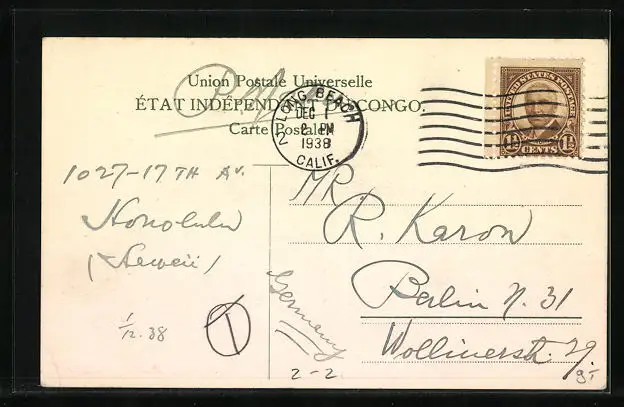 Union Postale Universelle
ÉTAT INDÉPENDANT DU CONGO.
Carte Postale
LONG BEACH
2
DEC 1
2 PM
1938
CALIF.
UNITED STATES POSTAGE
1½ CENTS 1½
1027-17TH Av.
Honolulu
(Haweii)
1/12.38
1
MR.
R. Karon
Berlin N. 31
Wollinerstr. 29.
Germany
2-2